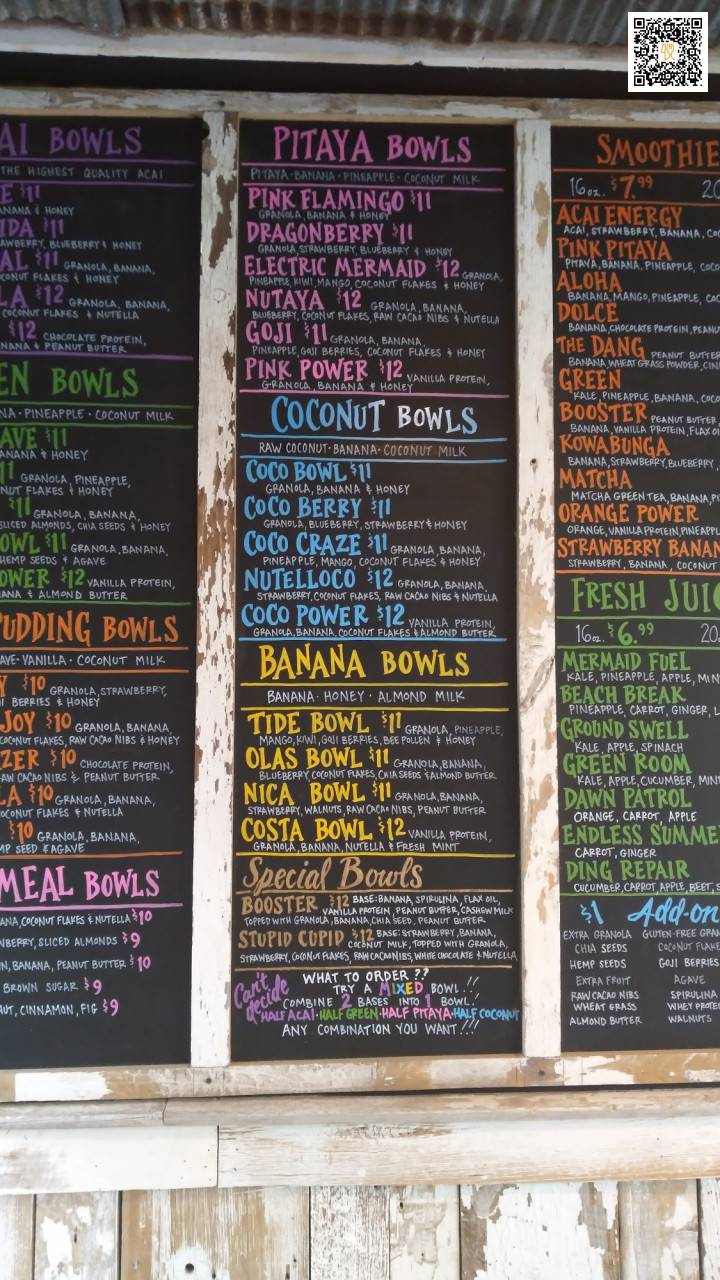 AI BOWLS
THE HIGHEST QUALITY ACAI
E $11
ANANA & HONEY
IDA $11
AWBERRY, BLUEBERRY & HONEY
AL $11 GRANOLA, BANANA,
CONUT FLAKES & HONEY
LA $12 GRANOLA, BANANA,
COCONUT FLAKES & NUTELLA
$12 CHOCOLATE PROTEIN,
NANA & PEANUT BUTTER
EN BOWLS
NA · PINEAPPLE · COCONUT MILK
AVE $11
ANANA & HONEY
11 GRANOLA, PINEAPPLE,
NUT FLAKES & HONEY
$11 GRANOLA, BANANA,
SLICED ALMONDS, CHIA SEEDS & HONEY
OWL $11 GRANOLA, BANANA,
HEMP SEEDS & AGAVE
OWER $12 VANILLA PROTEIN,
ANA & ALMOND BUTTER
PUDDING BOWLS
AVE · VANILLA · COCONUT MILK
Y $10 GRANOLA, STRAWBERRY,
I BERRIES & HONEY
JOY $10 GRANOLA, BANANA,
COCONUT FLAKES, RAW CACAO NIBS & HONEY
ZER $10 CHOCOLATE PROTEIN,
AW CACAO NIBS & PEANUT BUTTER
LA $10 GRANOLA, BANANA,
OCONUT FLAKES & NUTELLA
$10 GRANOLA, BANANA,
MP SEED & AGAVE
MEAL BOWLS
ANA, COCONUT FLAKES & NUTELLA $10
WBERRY, SLICED ALMONDS $9
N, BANANA, PEANUT BUTTER $10
BROWN SUGAR $9
UT, CINNAMON, FIG $9
PITAYA BOWLS
PITAYA · BANANA · PINEAPPLE · COCONUT MILK
PINK FLAMINGO $11
GRANOLA, BANANA & HONEY
DRAGONBERRY $11
GRANOLA, STRAWBERRY, BLUEBERRY & HONEY
ELECTRIC MERMAID $12 GRANOLA,
PINEAPPLE, KIWI, MANGO, COCONUT FLAKES & HONEY
NUTAYA $12 GRANOLA, BANANA,
BLUEBERRY, COCONUT FLAKES, RAW CACAO NIBS & NUTELLA
GOJI $11 GRANOLA, BANANA,
PINEAPPLE, GOJI BERRIES, COCONUT FLAKES & HONEY
PINK POWER $12 VANILLA PROTEIN,
GRANOLA, BANANA & HONEY
COCONUT BOWLS
RAW COCONUT · BANANA · COCONUT MILK
COCO BOWL $11
GRANOLA, BANANA & HONEY
COCO BERRY $11
GRANOLA, BLUEBERRY, STRAWBERRY & HONEY
COCO CRAZE $11 GRANOLA, BANANA,
PINEAPPLE, MANGO, COCONUT FLAKES & HONEY
NUTELLOCO $12 GRANOLA, BANANA,
STRAWBERRY, COCONUT FLAKES, RAW CACAO NIBS & NUTELLA
COCO POWER $12 VANILLA PROTEIN,
GRANOLA, BANANA, COCONUT FLAKES & ALMOND BUTTER
BANANA BOWLS
BANANA · HONEY · ALMOND MILK
TIDE BOWL $11 GRANOLA, PINEAPPLE,
MANGO, KIWI, GOJI BERRIES, BEE POLLEN & HONEY
OLAS BOWL $11 GRANOLA, BANANA,
BLUEBERRY, COCONUT FLAKES, CHIA SEEDS & ALMOND BUTTER
NICA BOWL $11 GRANOLA, BANANA,
STRAWBERRY, WALNUTS, RAW CACAO NIBS, PEANUT BUTTER
COSTA BOWL $12 VANILLA PROTEIN,
GRANOLA, BANANA, NUTELLA & FRESH MINT
Special Bowls
BOOSTER $12 BASE: BANANA, SPIRULINA, FLAX OIL,
VANILLA PROTEIN, PEANUT BUTTER, CASHEW MILK
TOPPED WITH GRANOLA, BANANA, CHIA SEED, PEANUT BUTTER
STUPID CUPID $12 BASE: STRAWBERRY, BANANA,
COCONUT MILK, TOPPED WITH GRANOLA,
STRAWBERRY, COCONUT FLAKES, RAW CACAO NIBS, WHITE CHOCOLATE & NUTELLA
Can't decide
WHAT TO ORDER ??
TRY A MIXED BOWL !!
COMBINE 2 BASES INTO 1 BOWL!
HALF ACAI · HALF GREEN · HALF PITAYA · HALF COCONUT
ANY COMBINATION YOU WANT!!!
SMOOTHIE
16oz. $7.99 20
ACAI ENERGY
ACAI, STRAWBERRY, BANANA, COC
PINK PITAYA
PITAYA, BANANA, PINEAPPLE, COCO
ALOHA
BANANA, MANGO, PINEAPPLE, COC
DOLCE
BANANA, CHOCOLATE PROTEIN, PEANU
THE DANG PEANUT BUTTER
BANANA, WHEAT GRASS POWDER, CIN
GREEN
KALE, PINEAPPLE, BANANA, COCO
BOOSTER PEANUT BUTTER,
BANANA, VANILLA PROTEIN, FLAX OI
KOWABUNGA
BANANA, STRAWBERRY, BLUEBERRY,
MATCHA
MATCHA GREEN TEA, BANANA, P
ORANGE POWER
ORANGE, VANILLA PROTEIN, PINEAPPL
STRAWBERRY BANAN
STRAWBERRY, BANANA, COCONUT
FRESH JUIC
16oz. $6.99 20
MERMAID FUEL
KALE, PINEAPPLE, APPLE, MIN
BEACH BREAK
PINEAPPLE, CARROT, GINGER, L
GROUND SWELL
KALE, APPLE, SPINACH
GREEN ROOM
KALE, APPLE, CUCUMBER, MINT
DAWN PATROL
ORANGE, CARROT, APPLE
ENDLESS SUMME
CARROT, GINGER
DING REPAIR
CUCUMBER, CARROT, APPLE, BEET, S
$1 Add-on
EXTRA GRANOLA GLUTEN-FREE GRAN
CHIA SEEDS COCONUT FLAKE
HEMP SEEDS GOJI BERRIES
EXTRA FRUIT AGAVE
RAW CACAO NIBS SPIRULINA
WHEAT GRASS WHEY PROTE
ALMOND BUTTER WALNUTS